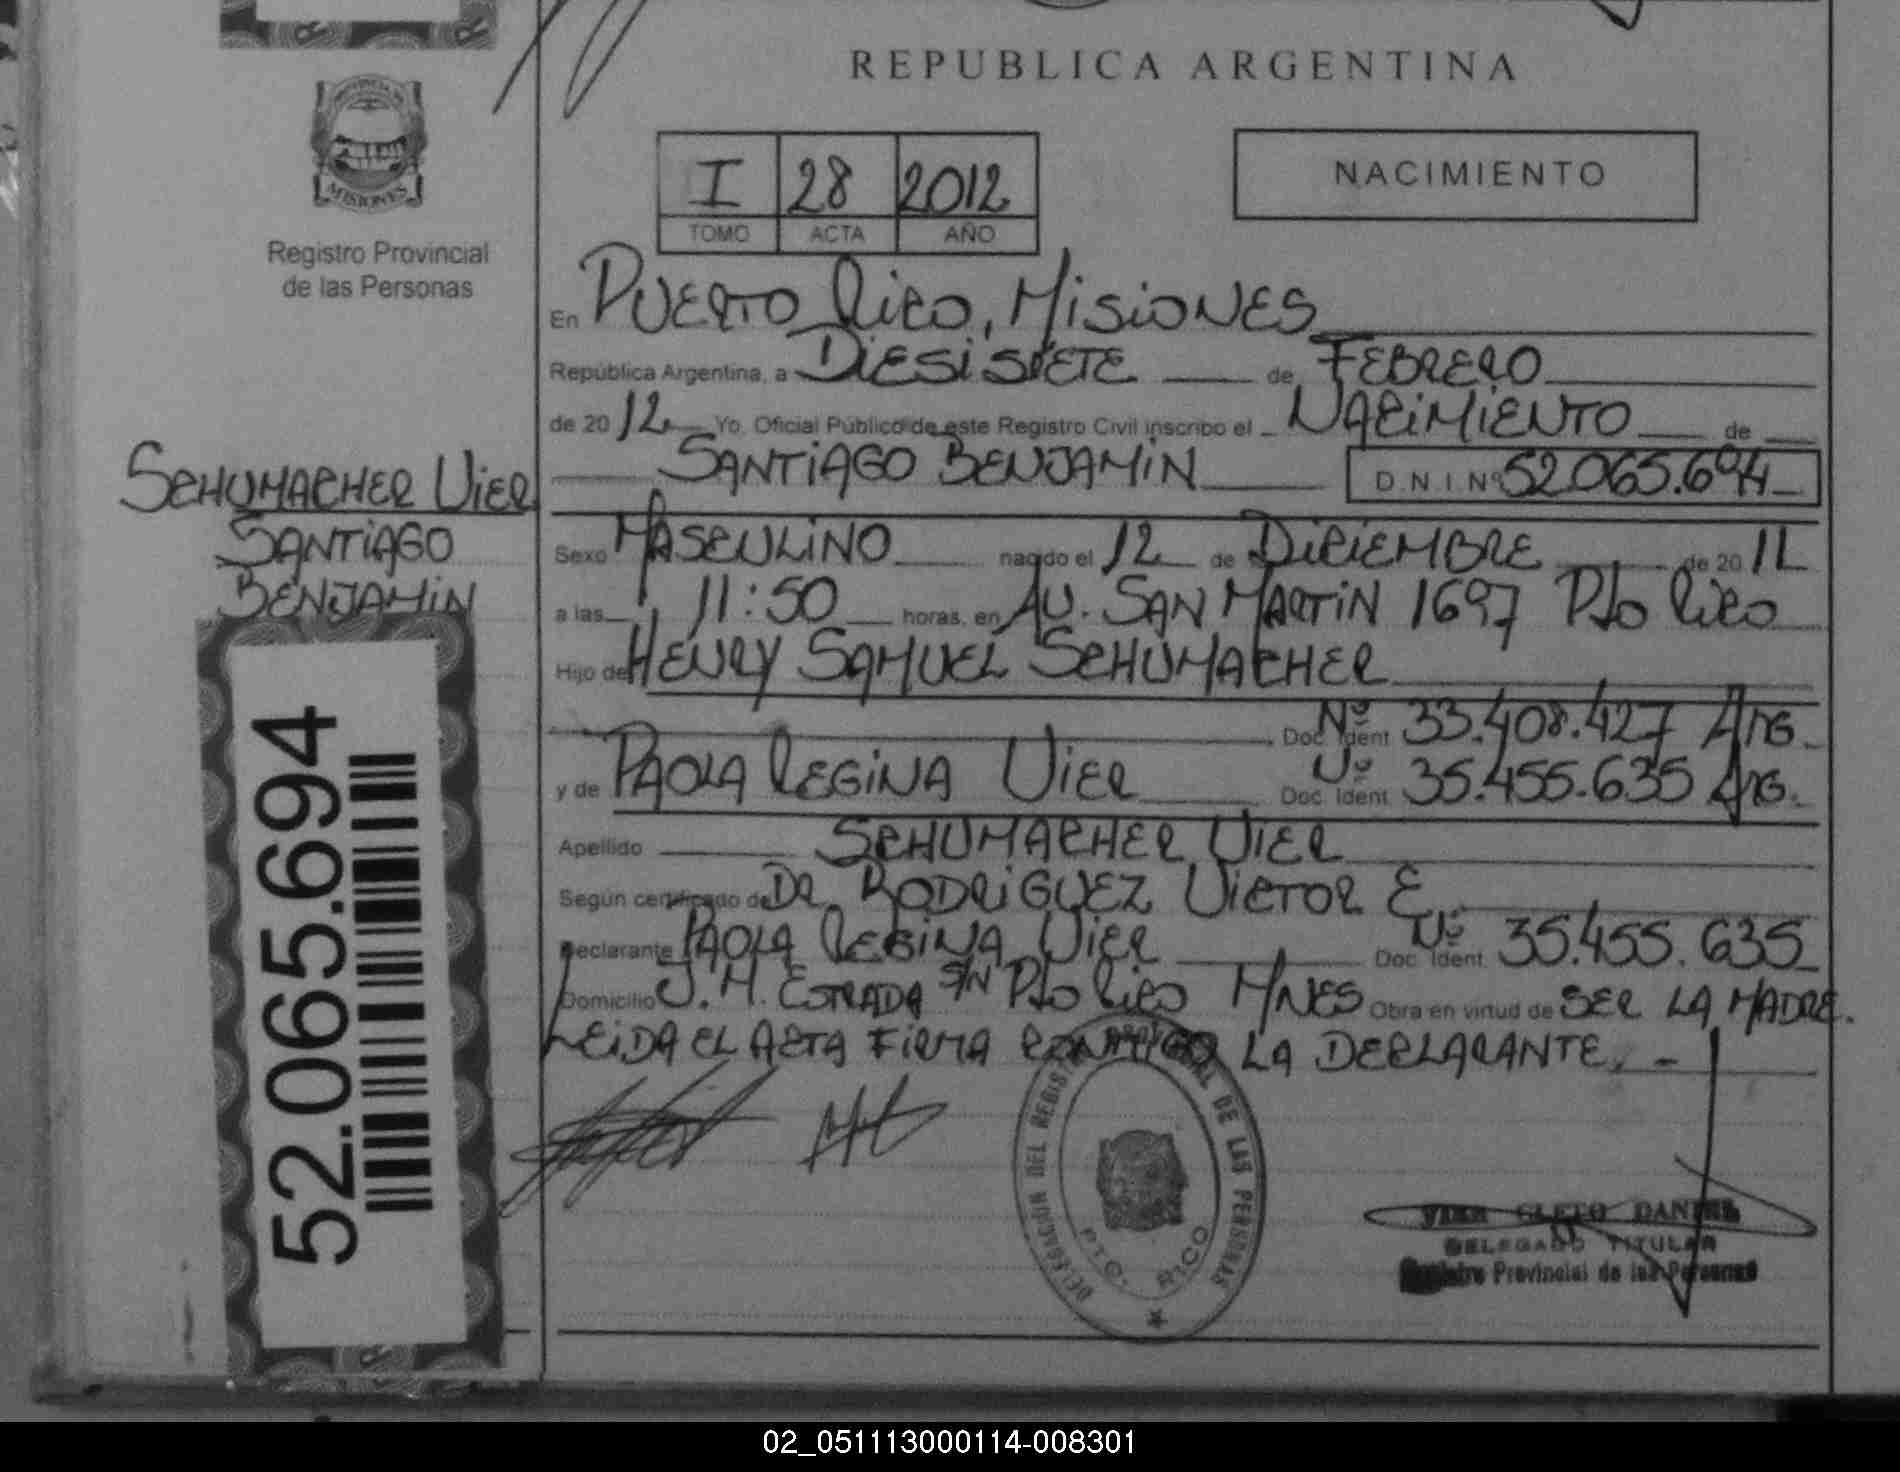 REPUBLICA ARGENTINA
PROVINCIA DE
MISIONES
Registro Provincial
de las Personas
I 28 2012
TOMO ACTA AÑO
NACIMIENTO
En PUERTO RICO, MISIONES
República Argentina, a DIESISIETE de FEBRERO
de 2012 Yo, Oficial Público de este Registro Civil inscribo el NACIMIENTO de
SANTIAGO BENJAMIN D.N.I. Nº 52.065.694
SCHUMACHER VIER
SANTIAGO
BENJAMIN
Sexo MASCULINO nacido el 12 de DICIEMBRE de 2011
a las 11:50 horas, en AV. SAN MARTIN 1697 Pto RICO
Hijo de HENRY SAMUEL SCHUMACHER
Doc. Ident. Nº 33.408.427 ARG.
y de PAOLA REGINA VIER Doc. Ident. Nº 35.455.635 ARG.
Apellido SCHUMACHER VIER
Según certificado de DR. RODRIGUEZ VICTOR E.
Declarante PAOLA REGINA VIER Doc. Ident. Nº 35.455.635
Domicilio J. M. ESTRADA S/N Pto RICO MNES Obra en virtud de SER LA MADRE.
LEIDA EL ACTA FIRMA CONMIGO LA DECLARANTE. -
52.065.694
DELEGACION DEL REGISTRO PROVINCIAL DE LAS PERSONAS
PTO. RICO
CLETO DANIEL
DELEGADO TITULAR
Registro Provincial de las Personas
02_051113000114-008301